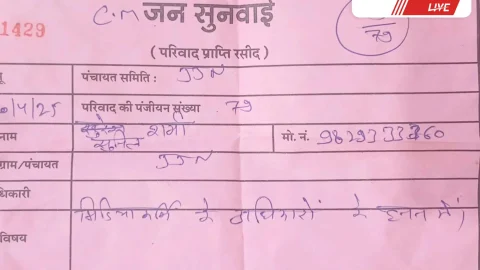 LIVE
C.M जन सुनवाई
1429
79
( परिवाद प्राप्ति रसीद )
पंचायत समिति : JJN
/4/25 परिवाद की पंजीयन संख्या 79
नाम शर्मा मो. नं.
सुनिल
ग्राम/पंचायत JJN
धिकारी
मिडिया कर्मि के अधिकारों के हनन में।
विषय